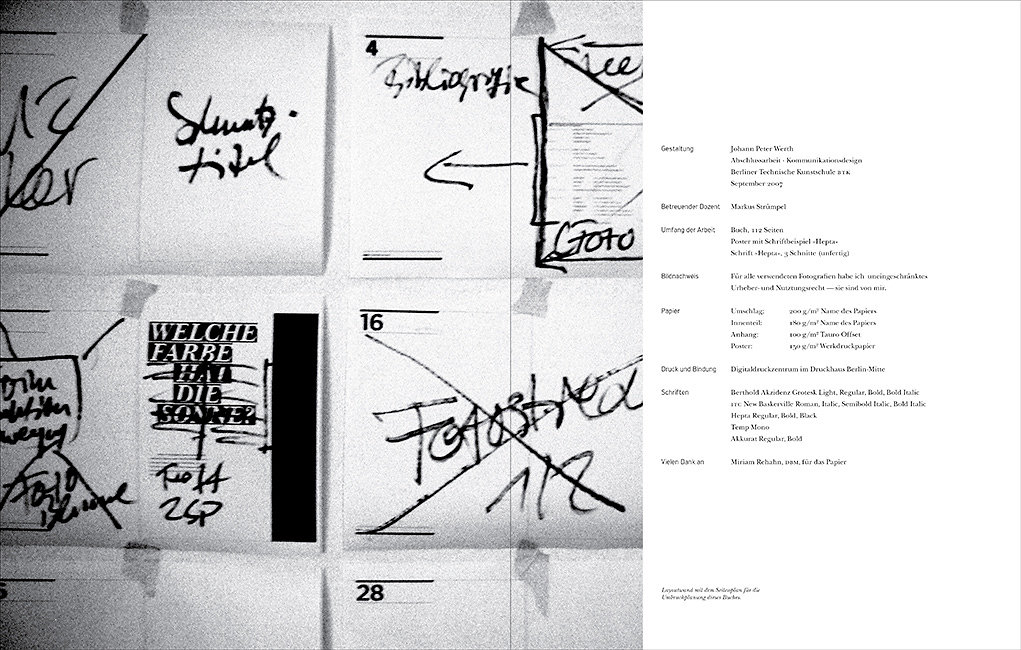 Schmutz-
titel
4
Bibliografie
Foto
WELCHE
FARBE
HAT
DIE
SONNE?
16
1/2
28
Gestaltung
Johann Peter Werth
Abschlussarbeit · Kommunikationsdesign
Berliner Technische Kunstschule BTK
September 2007
Betreuender Dozent
Markus Strümpel
Umfang der Arbeit
Buch, 112 Seiten
Poster mit Schriftbeispiel »Hepta«
Schrift »Hepta«, 3 Schnitte (unfertig)
Bildnachweis
Für alle verwendeten Fotografien habe ich uneingeschränktes
Urheber- und Nutztungsrecht — sie sind von mir.
Papier
Umschlag: 200 g/m² Name des Papiers
Innenteil: 180 g/m² Name des Papiers
Anhang: 100 g/m² Tauro Offset
Poster: 150 g/m² Werkdruckpapier
Druck und Bindung
Digitaldruckzentrum im Druckhaus Berlin-Mitte
Schriften
Berthold Akzidenz Grotesk Light, Regular, Bold, Bold Italic
ITC New Baskerville Roman, Italic, Semibold Italic, Bold Italic
Hepta Regular, Bold, Black
Temp Mono
Akkurat Regular, Bold
Vielen Dank an
Miriam Rehahn, DBM, für das Papier
Layoutwand mit dem Seitenplan für die
Umbruchplanung dieses Buches.